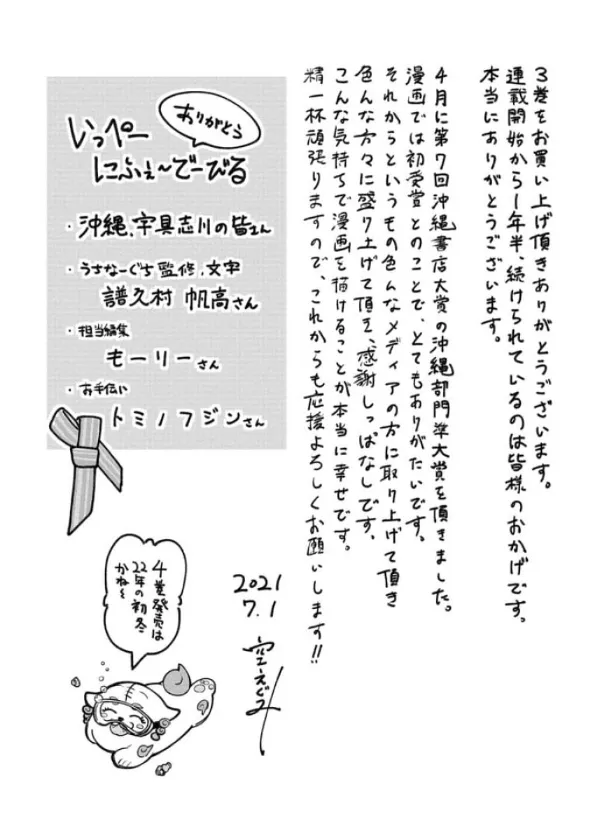 3巻をお買い上げ頂きありがとうございます。
連載開始から1年半、続けられているのは皆様のおかげです。
本当にありがとうございます。
4月に第7回沖縄書店大賞の沖縄部門準大賞を頂きました。
漫画では初受賞とのことで、とてもありがたいです。
それからというもの色んなメディアの方に取り上げて頂き
色んな方々に盛り上げて頂き、感謝しっぱなしです。
こんな気持ちで漫画を描けることが本当に幸せです。
精一杯頑張りますので、これからも応援よろしくお願いします!!
ありがとう
いっぺー
にふぇ〜でーびる
・沖縄、宇具志川の皆さん
・うちなーぐち監修、文字
譜久村 帆高さん
・担当編集
もーリーさん
・お手伝い
トミノフジンさん
4巻発売は
22年の初冬
かね〜
2021
7.1
空えぐみ